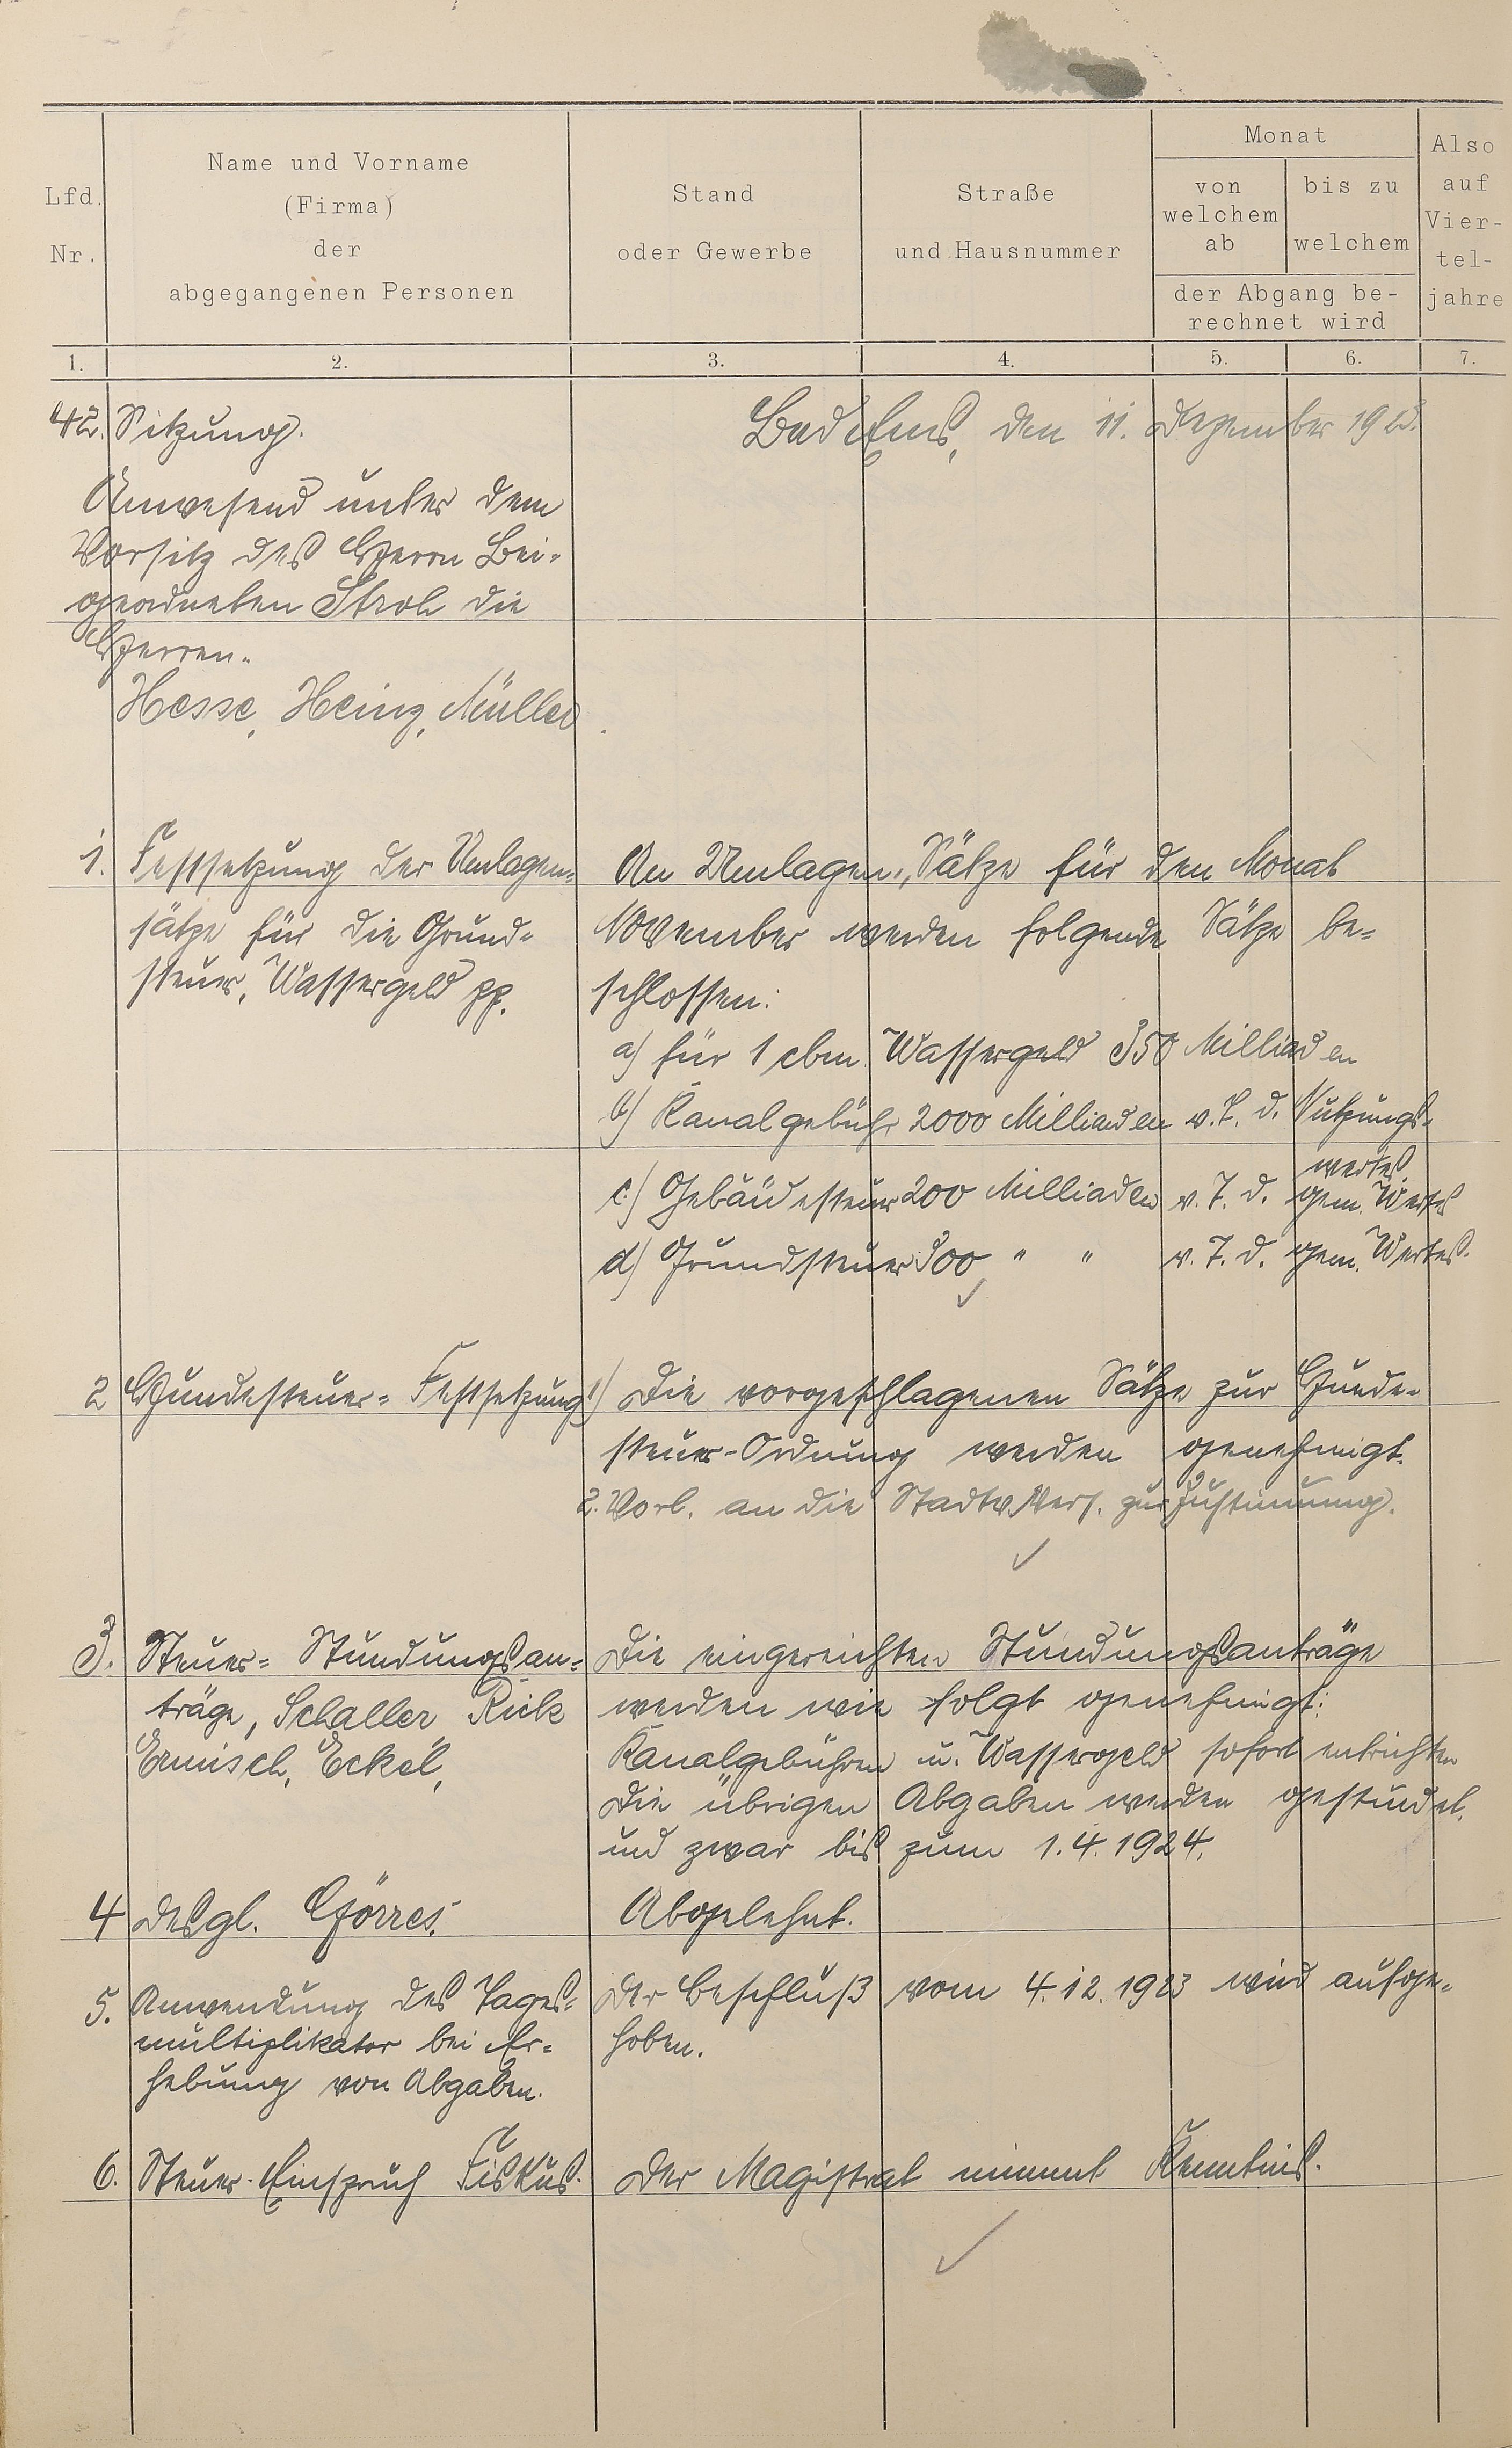 Lfd. Nr.
Name und Vorname
(Firma)
der
abgegangenen Personen
Stand
oder Gewerbe
Straße
und Hausnummer
Monat
von
welchem
ab
bis zu
welchem
der Abgang be-
rechnet wird
Also
auf
Vier-
tel-
jahre
1. 2. 3. 4. 5. 6. 7.
42. Sitzung. Bad Ems, den 11. Dezember 1923.
Anwesend unter dem
Vorsitz des Herrn Bei-
geordneten Stroh die
Herren.
Hesse, Heinz, Müller.
1. Festsetzung der Umlagen-
sätze für die Grund-
steuer, Wassergeld pp.
An Umlagen-Sätze für den Monat
November werden folgende Sätze be-
schlossen:
a) für 1 cbm Wassergeld 350 Milliarden
b) Kanalgebühr 2000 Milliarden v. T. d. Nutzungs-
wertes
c) Gebäudesteuer 200 Milliarden v. T. d. gem. Wertes
d) Grundsteuer 300 " " v. T. d. gem. Wertes.
2 Hundesteuer-Festsetzung
1) Die vorgeschlagenen Sätze zur Hunde-
steuer-Ordnung werden genehmigt.
2. Vorl. an die Stadtv. Vers. zur Zustimmung.
3. Steuer-Stundungsan-
träge, Schaller, Rick
Ermisch, Eckel,
Die eingereichten Stundungsanträge
werden wie folgt genehmigt:
Kanalgebühren u. Wassergeld sofort entrichten
Die übrigen Abgaben werden gestundet.
und zwar bis zum 1.4.1924.
4 Desgl. Görres. Abgelehnt.
5. Anwendung des Tages-
multiplikator bei Er-
hebung von Abgaben.
Der Beschluß vom 4.12.1923 wird aufge-
hoben.
6. Steuer-Einspruch Fiskus. Der Magistrat nimmt Kenntnis.